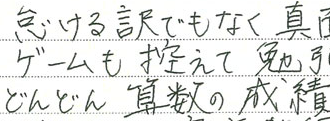 怠ける訳でもなく 真
ゲームも 控えて 勉
どんどん 算数の 成績